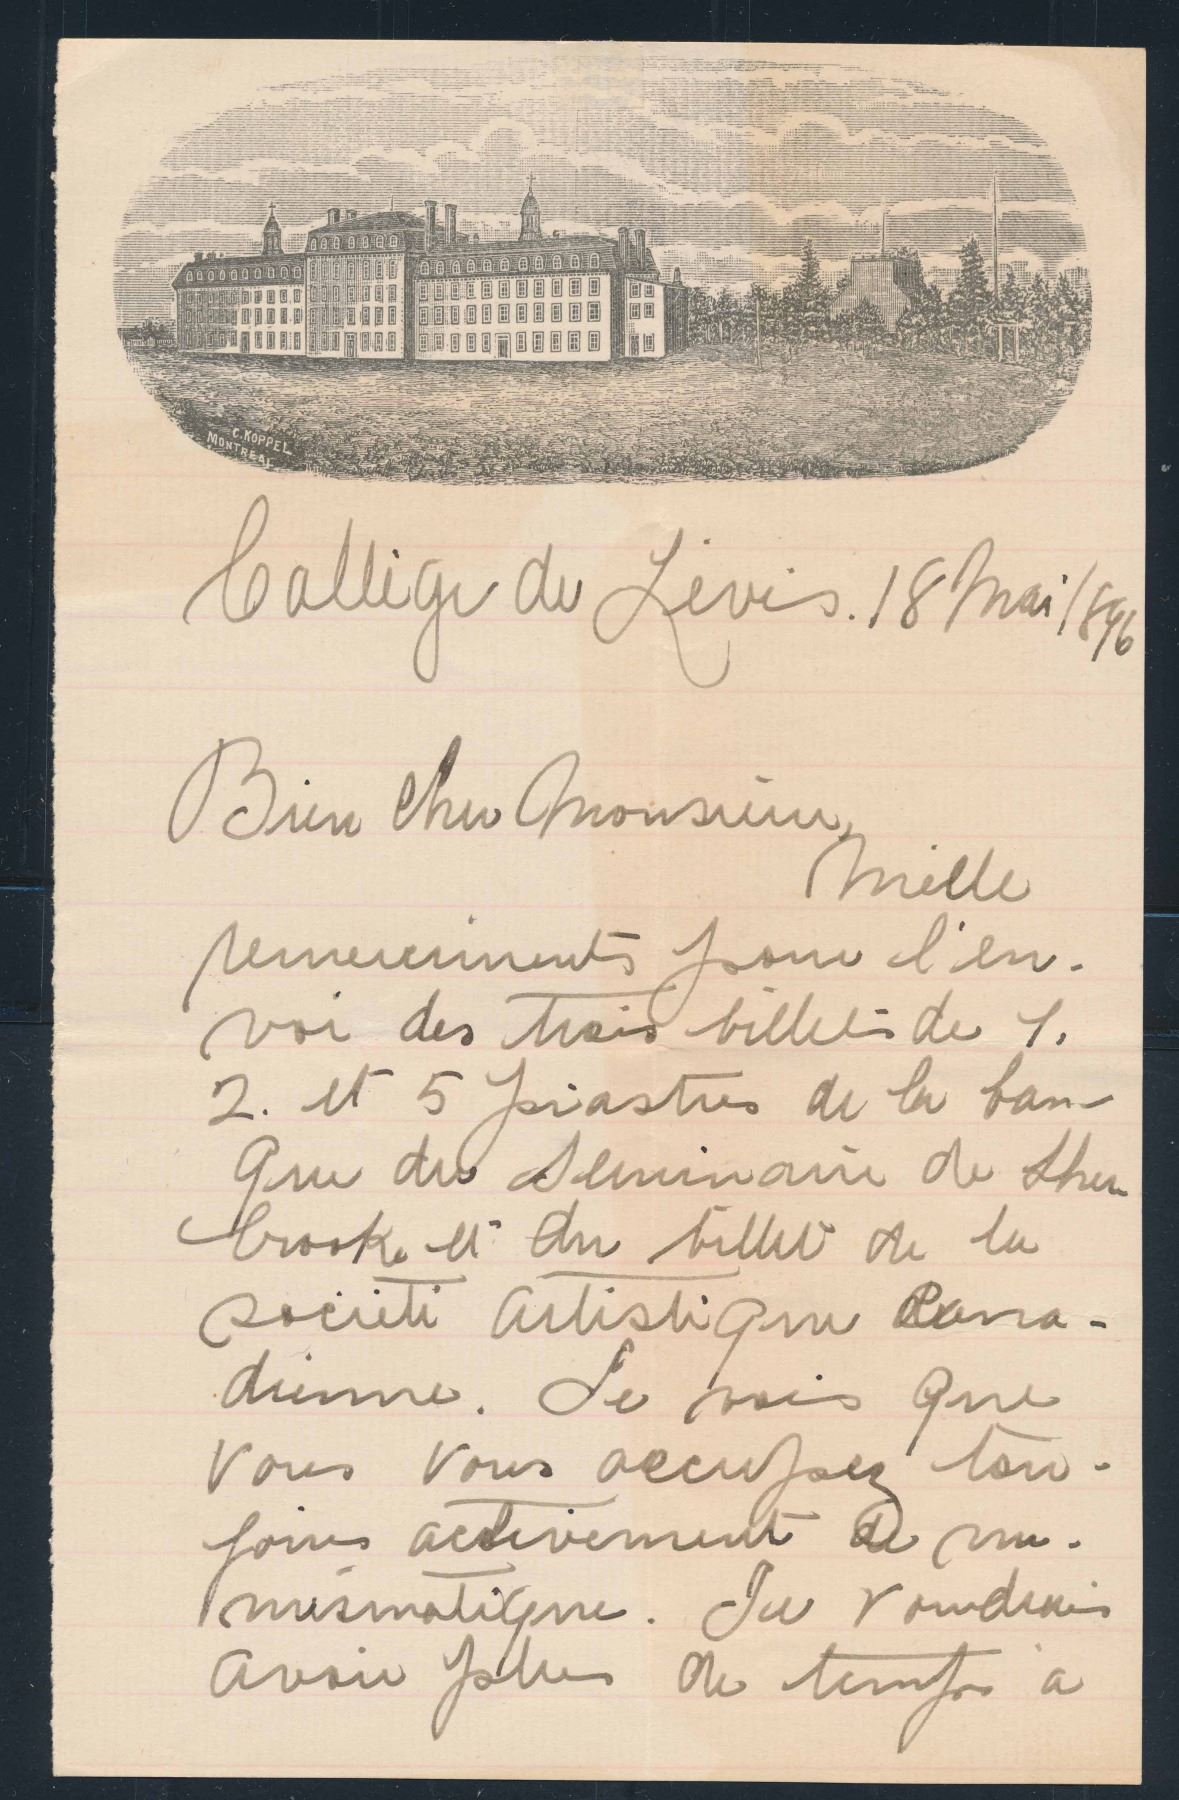 C. KOPPEL
MONTREAL
Collège de Lévis. 18 Mai/896
Bien cher Monsieur,
Mille
remerciments pour l'en-
voi des trois billets de 1.
2. et 5 piastres de la ban-
que du Séminaire de Sher
brooke et du billet de la
société artistique cana-
dienne. Je vois que
vous vous occupez tou-
jours activement de nu-
mismatique. Je voudrais
avoir plus de temps à